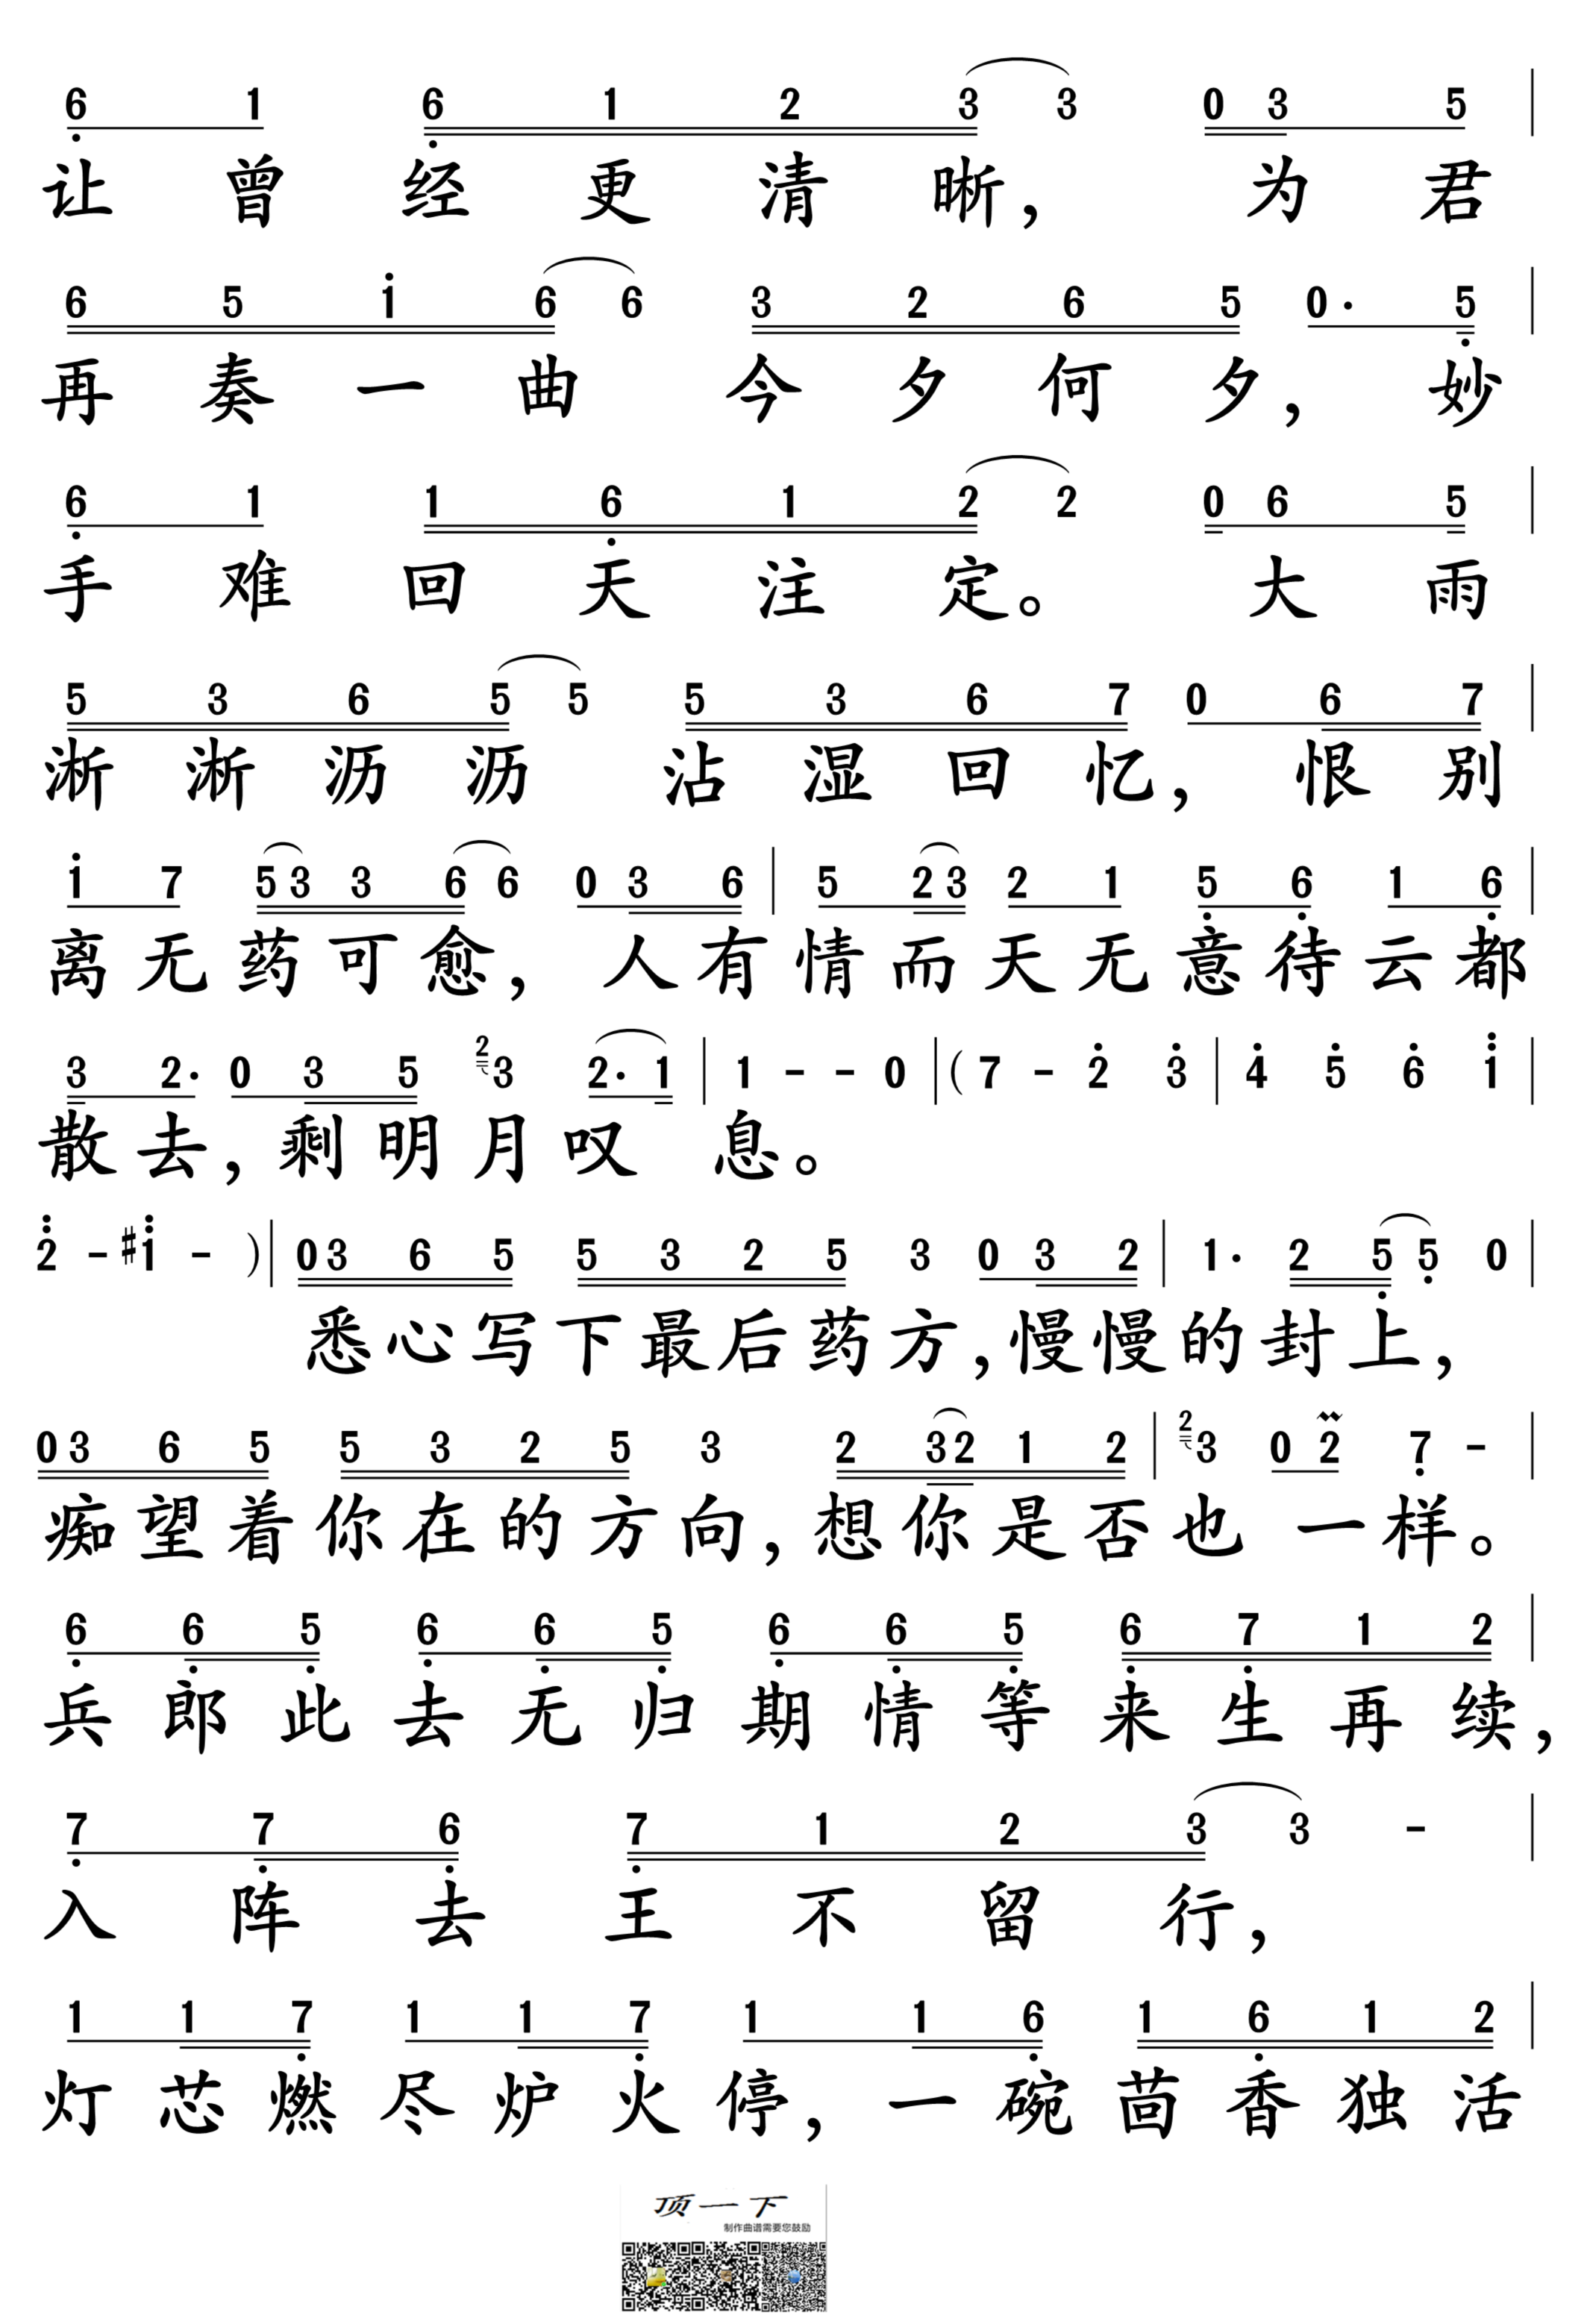 6 1 6 1 2 3 3 0 3 5
让曾经更清晰，为君
6 5 1 6 6 3 2 6 5 0· 5
再奏一曲今夕何夕，妙
6 1 1 6 1 2 2 0 6 5
手难回天注定。大雨
5 3 6 5 5 5 3 6 7 0 6 7
淅淅沥沥沾湿回忆，恨别
1 7 5 3 3 6 6 0 3 6 | 5 2 3 2 1 5 6 1 6
离无药可愈，人有情而天无意待云都
3 2· 0 3 5 2 3 2· 1 | 1 - - 0 | ( 7 - 2 3 | 4 5 6 1
散去，剩明月叹息。
2 - #1 - ) | 0 3 6 5 5 3 2 5 3 0 3 2 | 1· 2 5 5 0
悉心写下最后药方，慢慢的封上，
0 3 6 5 5 3 2 5 3 2 3 2 1 2 | 2 3 0 2 7 -
痴望着你在的方向，想你是否也一样。
6 6 5 6 6 5 6 6 5 6 7 1 2
兵郎此去无归期情等来生再续，
7 7 6 7 1 2 3 3 -
入阵去王不留行，
1 1 7 1 1 7 1 1 6 1 6 1 2
灯芯燃尽炉火停，一碗茴香独活
顶一下
制作曲谱需要您鼓励